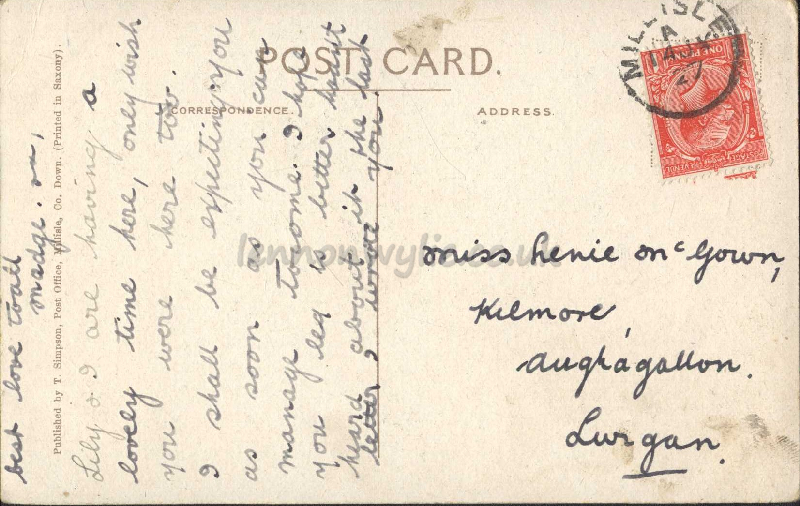 POST CARD.
CORRESPONDENCE.
ADDRESS.
MILLISLE
A
ONE PENNY
POSTAGE REVENUE
Published by T. Simpson, Post Office, Millisle, Co. Down. (Printed in Saxony).
Lily & I are having a
lovely time here, only wish
you were here too.
I shall be expecting you
as soon as you can
manage to come. I hope
you leg is better havent
heard about it the last
letter I wrote you
best love to all
Madge.
Miss Henie McGown,
Kilmore,
Aughagallon.
Lurgan.
lennonwylie.co.uk